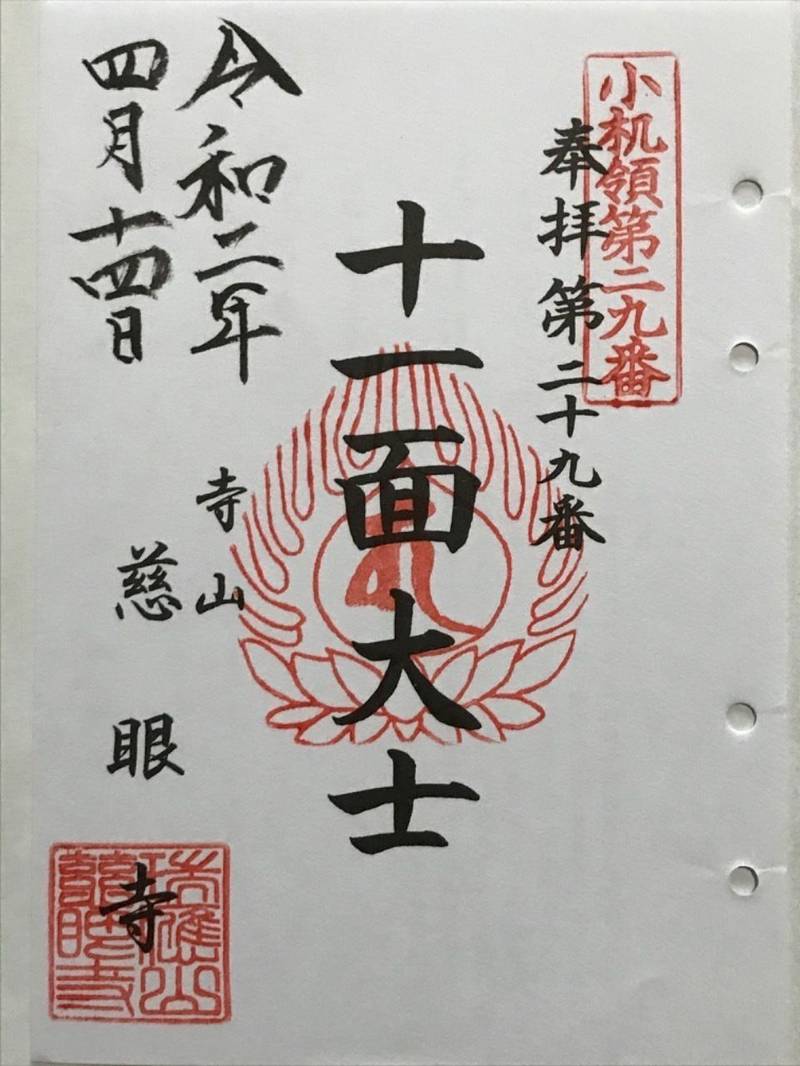 小机領第二九番
奉拝第二十九番
十一面大士
令和二年
四月十四日
寺山
慈眼寺
瑞應山
慈眼寺